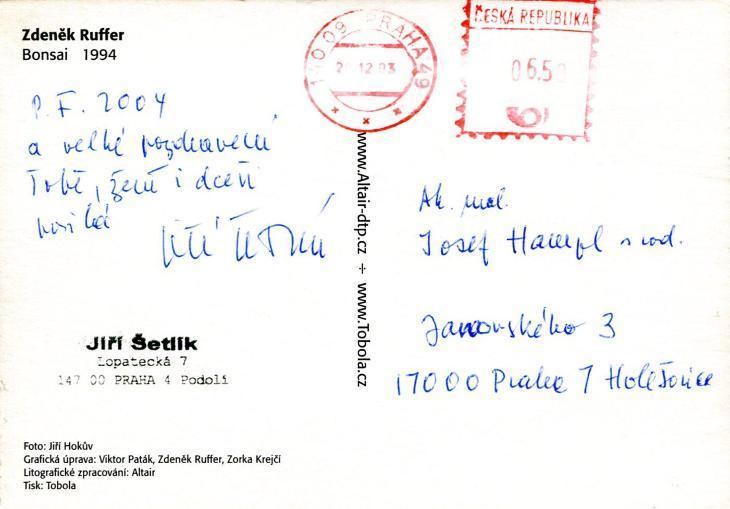 Zdeněk Ruffer
Bonsai 1994
P. F. 2004
a velké pozdravení
Tobě, ženě i dceři
posílá
Jiří Šetlík
Lopatecká 7
147 00 PRAHA 4 Podolí
Foto: Jiří Hokův
Grafická úprava: Viktor Paták, Zdeněk Ruffer, Zorka Krejčí
Litografické zpracování: Altair
Tisk: Tobola
www.Altair-dtp.cz ÷ www.Tobola.cz
140 09 PRAHA 49
12 03
ČESKÁ REPUBLIKA
06.50
Ak. mal.
Josef Hampl s rod.
Janovského 3
17000 Praha 7 Holešovice